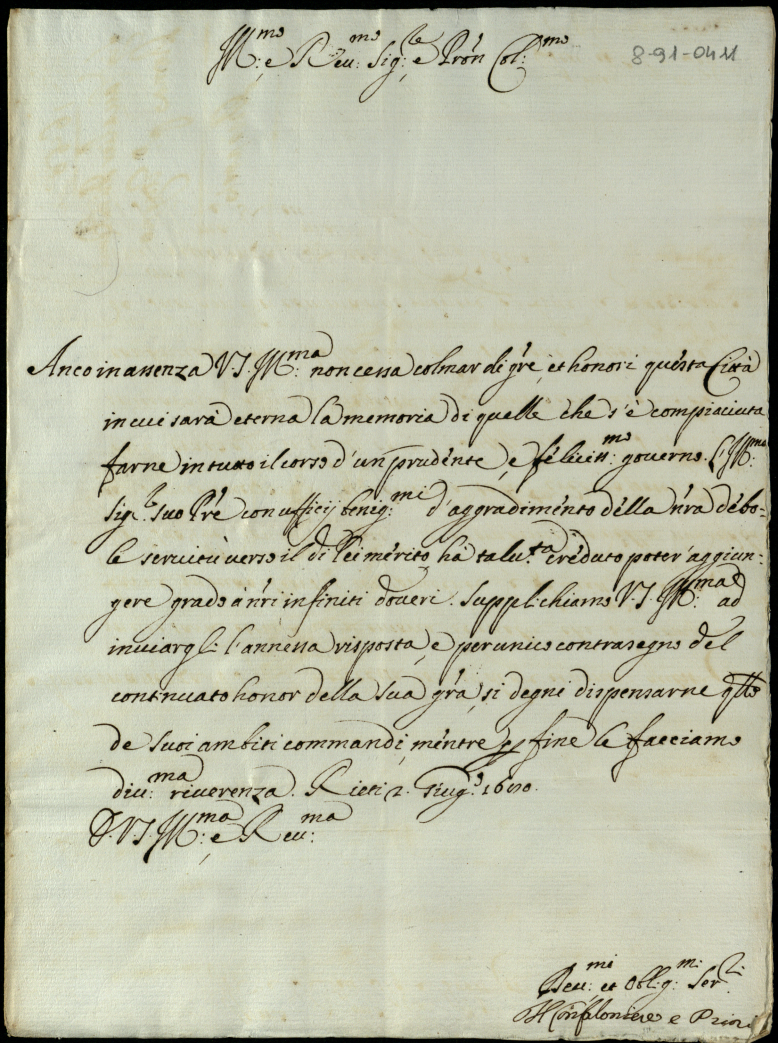 Ill:mo e Reu:mo Sig:re e Pron Col:mo
8-91-0411
Anco in assenza V.S. Ill:ma non cessa colmar di gre, et honori questa Città
in cui sarà eterna la memoria di quelle che s'è compiaciuta
farne in tutto il corso d'un prudente, e feliciss:mo gouerno. L'Ill:mo
Sig:re suo Pre con ufficij benig:mi d'aggradimento della nra debo-
le seruitù uerso il di lei merito, ha talu:ta creduto poter'aggiun-
gere grado à nri infiniti doueri. Suppl:chiamo V.S. Ill:ma ad
inuiargl: l'annessa risposta, e per unico contrasegno del
continuato honor della sua gra, si degni dispensarne qllo
de suoi ambiti commandi, mentre p fine le facciamo
diu:ma riuerenza. Rieti 2. Giug:o
D. V.S. Ill:ma e Reu:ma
Deu:mi et Obl:g:mi Ser:ri
Il Gonfaloniere e Priori